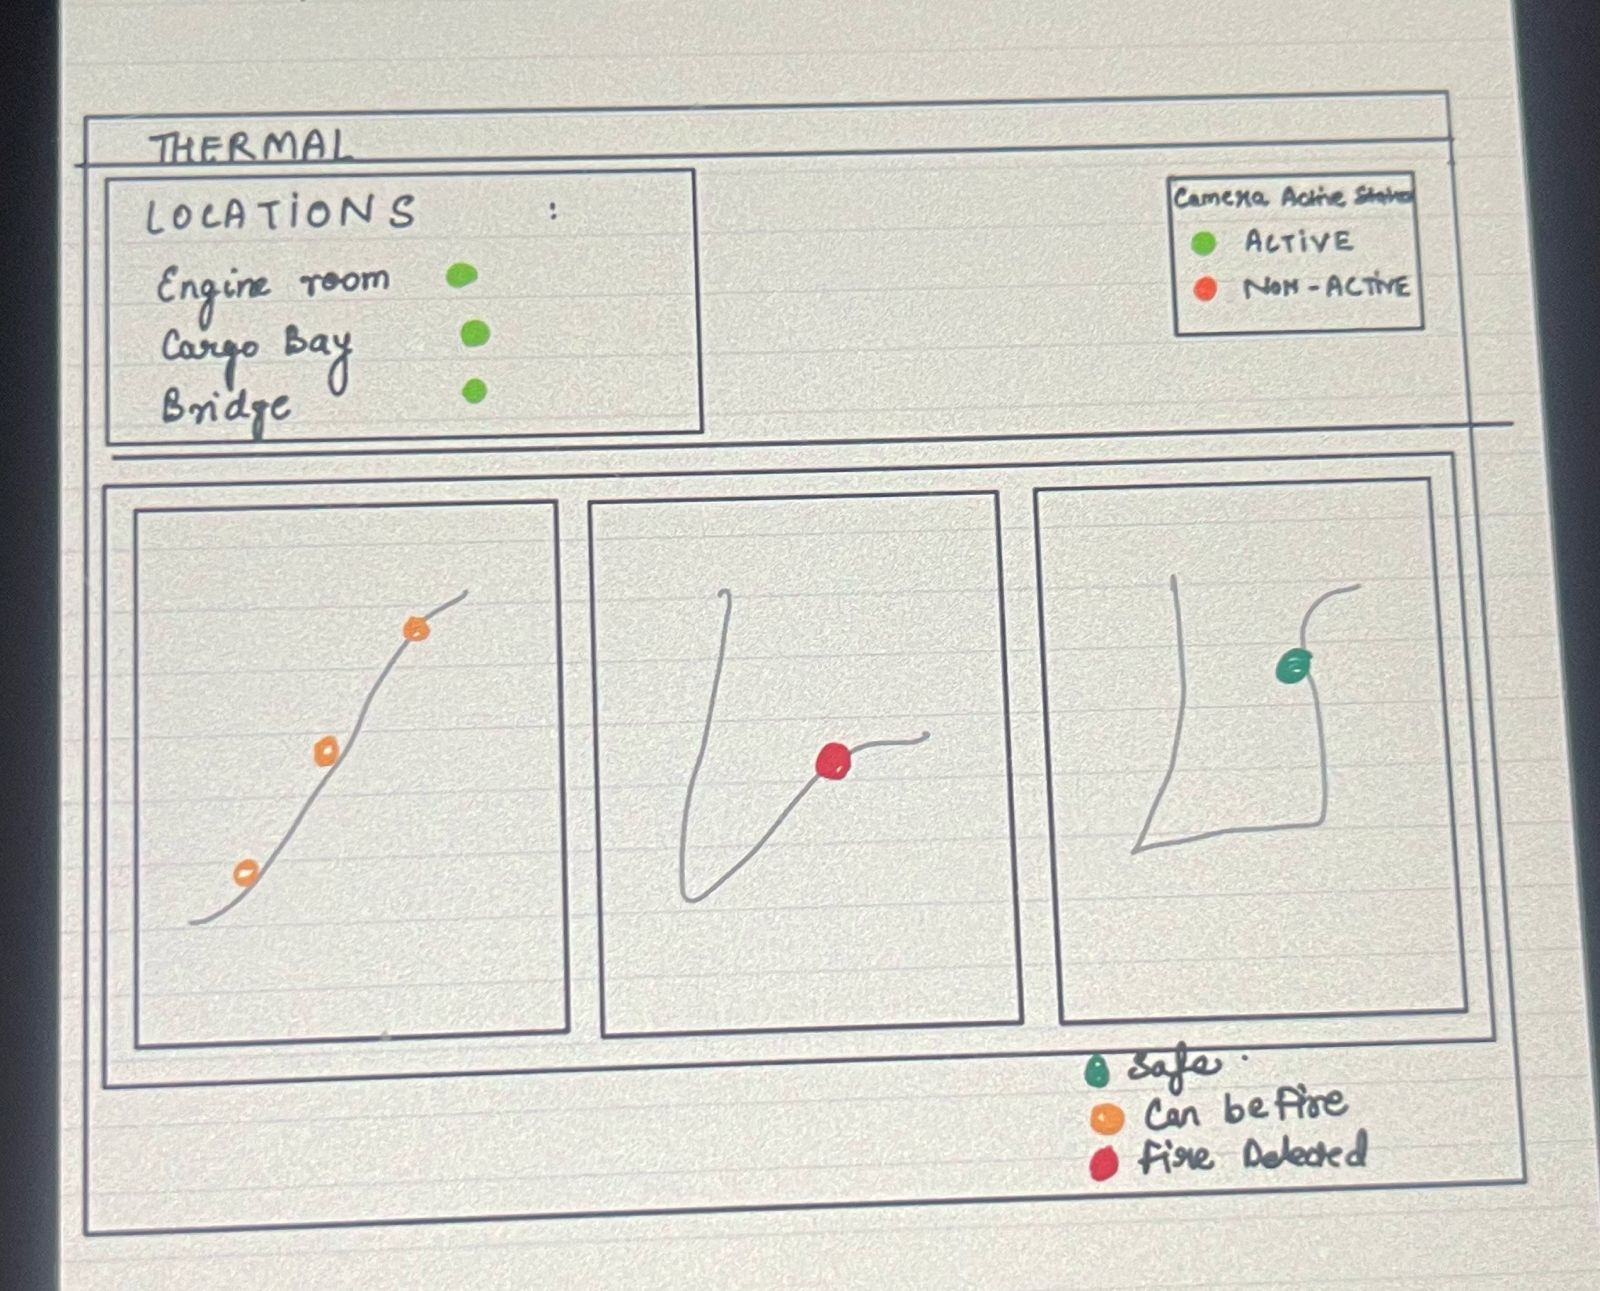 THERMAL
LOCATIONS :
Engine room
Cargo Bay
Bridge
Camera Active Status
ACTIVE
NON-ACTIVE
Safe.
Can be fire
Fire Detected